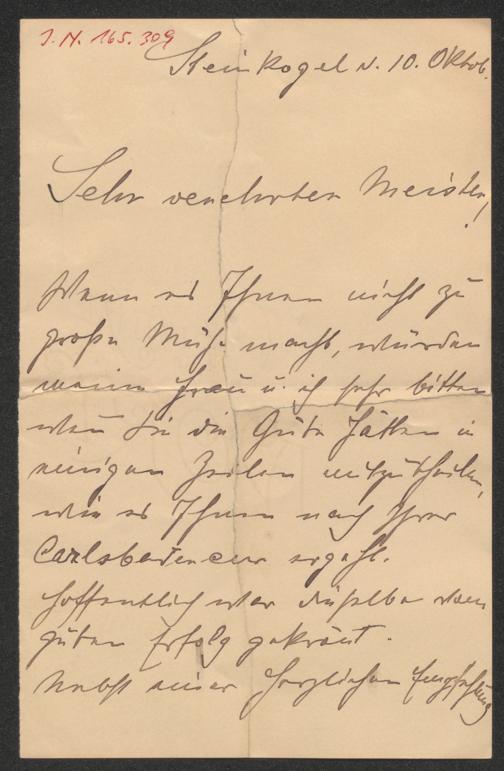 J.N. 165.309
Steinkogel d. 10. Oktob.
Sehr verehrter Meister!
Wenn es Ihnen nicht zu
große Mühe macht, würden
meine Frau u. ich sehr bitten
wenn Sie die Güte hätten in
einigen Zeilen mitzutheilen,
wie es Ihnen nach Ihrer
Carlsbadencur ergeht.
Hoffentlich war dieselbe von
gutem Erfolg gekrönt.
Nebst einer herzlichen Empfehlung